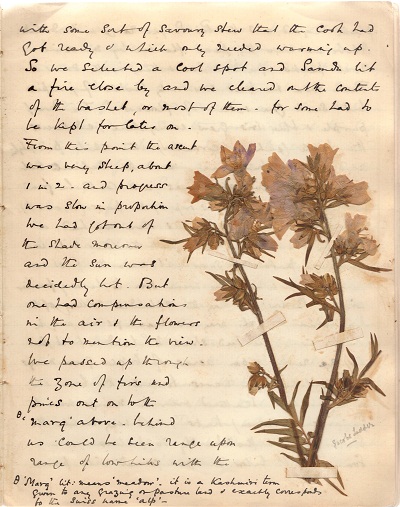 with some sort of savoury stew that the cook had
got ready & which only needed warming up.
So we selected a cool spot and Samdu lit
a fire close by and we cleared out the contents
of the basket, or most of them - for some had to
be kept for later on -
From this point the ascent
was very steep, about
1 in 2 - and progress
was slow in proportion
We had got out of
the shade moreover
and the sun was
decidedly hot. But
one had compensations
in the air & the flowers
not to mention the view.
We passed up through
the zone of firs and
pines out on to the
θ 'marg' above - behind
us could be seen range upon
range of low hills with the
θ 'Marg' lit: means 'meadow'. it is a Kashmiri term
given to any grazing or pasture land & exactly corresponds
to the Swiss name 'alp' -
Jacob's Ladder